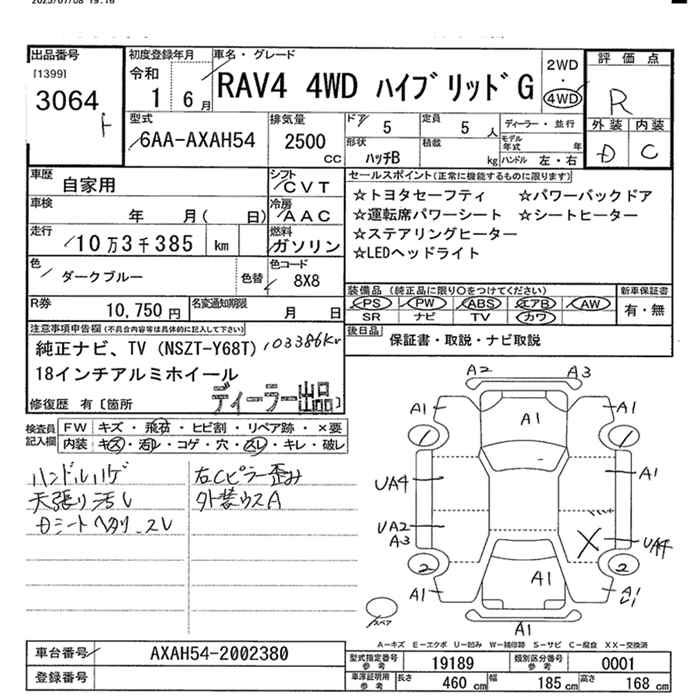 2025/07/08 19:16
出品番号
[1399]
3064
初度登録年月
令和
1 6月
車名・グレード
RAV4 4WD ハイブリッドG
2WD
・
4WD
評価点
R
外装 内装
D C
型式
6AA-AXAH54
排気量
2500
cc
ドア 5
定員 5 人
ディーラー・並行
形状
ハッチB
積載 kg
モデル年式 年
ハンドル 左・右
車歴
自家用
シフト
CVT
セールスポイント(正常に機能するものに限ります)
☆トヨタセーフティ ☆パワーバックドア
☆運転席パワーシート ☆シートヒーター
☆ステアリングヒーター
☆LEDヘッドライト
車検
年 月( 日)
冷房
AAC
走行
10万3千385 km
燃料
ガソリン
色
ダークブルー
色替
色コード
8X8
装備品(純正品に限り○をつけてください)
PS PW ABS エアB AW
SR ナビ TV カワ
新車保証書
有・無
R券
10,750円
名変通知期限
月 日
後日品
保証書・取説・ナビ取説
注意事項申告欄(不具合内容等は具体的に記入して下さい)
純正ナビ、TV(NSZT-Y68T) 103386Km
18インチアルミホイール
ディーラー出品
修復歴 有〔箇所 〕
検査員記入欄
FW キズ・飛石・ヒビ割・リペア跡・×要
内装 キズ・汚れ・コゲ・穴・スレ・キレ・破レ
ハンドルハゲ
天張り汚レ
Dシートヘタリ、スレ
右Cピラー歪み
外装ウスA
A2 A3
A1 A1 A1
1 1
UA4 A1
UA2
A3
UA4
X
2 2
A1 A1 A1
A1
スペア
A-キズ E-エクボ U-凹み W-補修跡 S-サビ C-腐食 XX-交換済
車台番号
AXAH54-2002380
登録番号
型式指定番号 参考
19189
類別区分番号 参考
0001
車庫証明用 参考
長さ 460 cm
幅 185 cm
高さ 168 cm